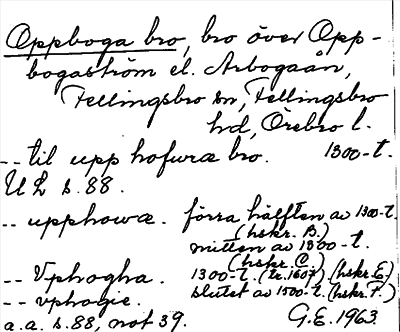 Oppboga bro, bro över Opp-
bogaström el. Arbogaån,
Fellingsbro sn, Fellingsbro
hd, Örebro l.
-- til upp hofwræ bro. 1300-t.
UL s. 88.
-- upphowæ. förra hälften av 1300-t.
(hskr. B.)
mitten av 1300-t.
(hskr. C.)
-- Vphogha. 1300-t. (tr. 1607) (hskr. E)
-- vphogie. slutet av 1500-t. (hskr. F.)
a.a. s. 88, not 39. G.E. 1963